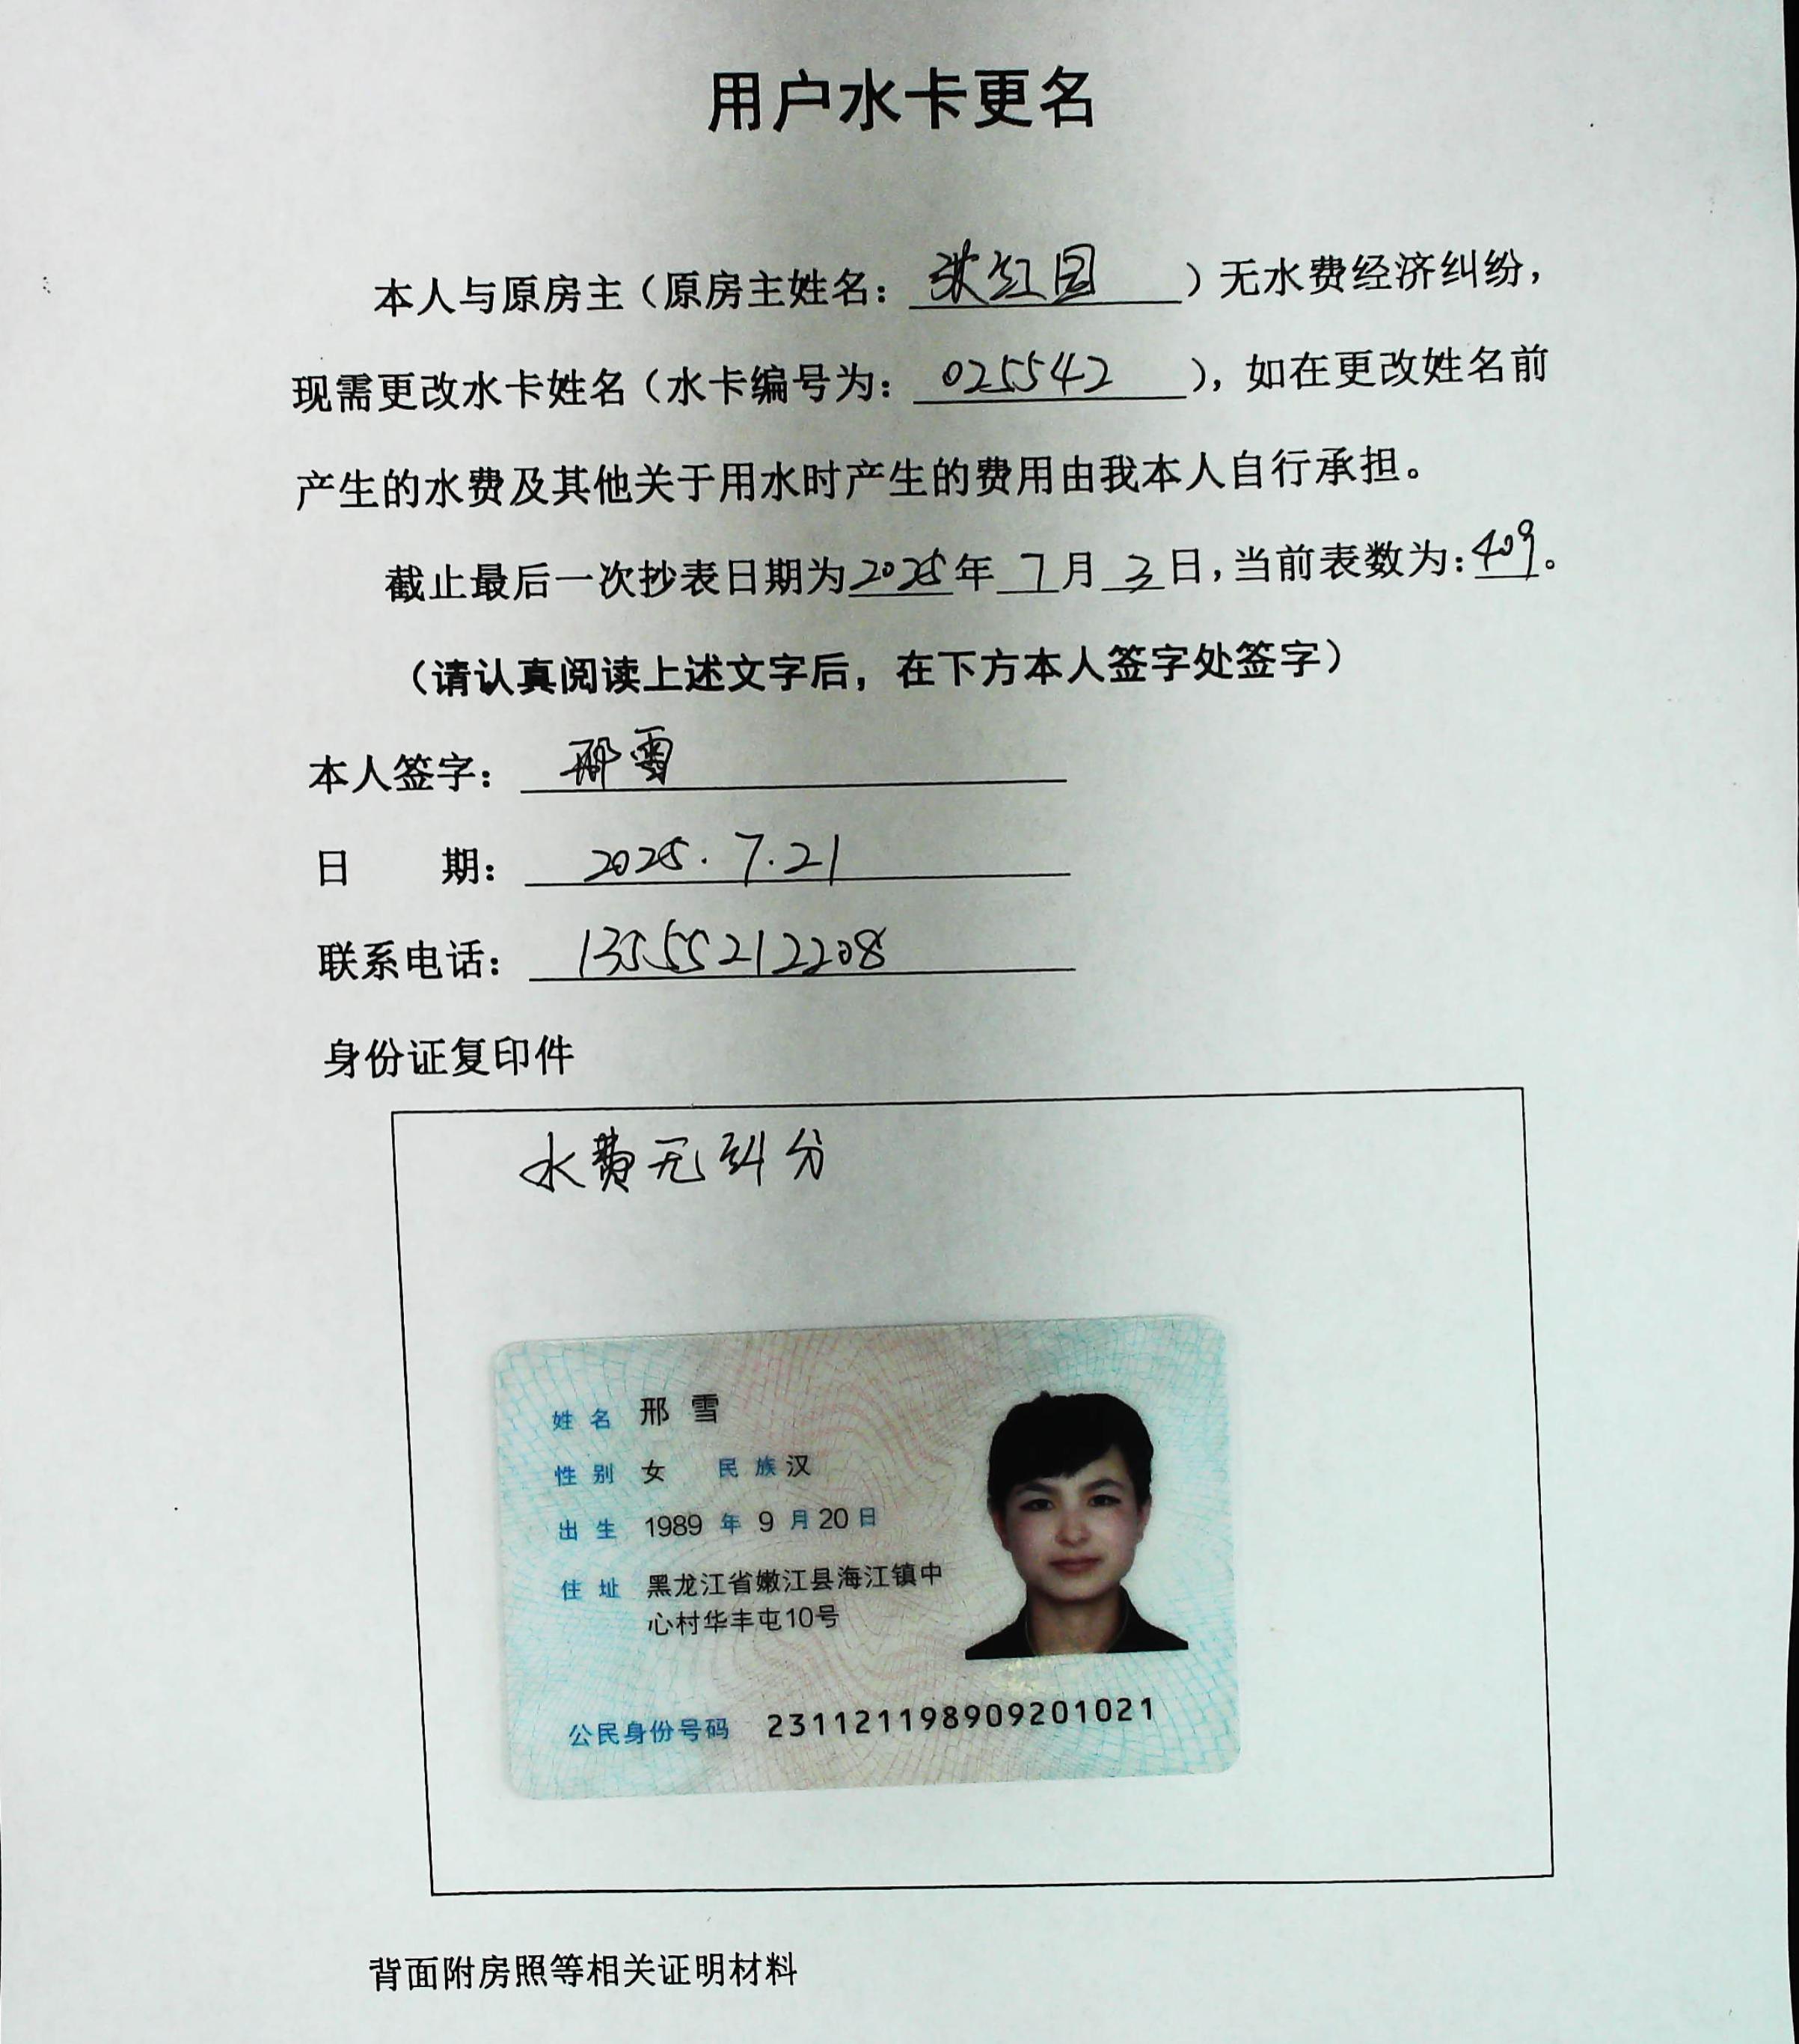 用户水卡更名
本人与原房主（原房主姓名：张红国）无水费经济纠纷，
现需更改水卡姓名（水卡编号为：025542），如在更改姓名前
产生的水费及其他关于用水时产生的费用由我本人自行承担。
截止最后一次抄表日期为2025年7月3日，当前表数为：409。
（请认真阅读上述文字后，在下方本人签字处签字）
本人签字：邢雪
日 期：2025.7.21
联系电话：13555212208
身份证复印件
水费无纠分
姓名 邢雪
性别 女 民族 汉
出生 1989年9月20日
住址 黑龙江省嫩江县海江镇中
心村华丰屯10号
公民身份号码 231121198909201021
背面附房照等相关证明材料